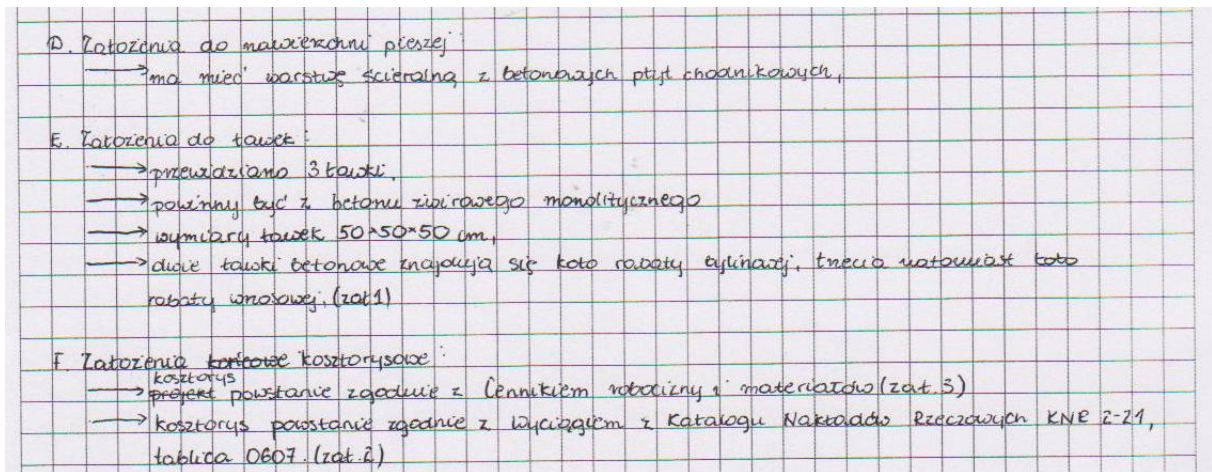 D. Założenia do nawierzchni pieszej:
→ ma mieć warstwę ścieralną z betonowych płyt chodnikowych,
E. Założenia do ławek:
→ przewidziano 3 ławki,
→ powinny być z betonu żwirowego monolitycznego
→ wymiary ławek 50×50×50 cm,
→ dwie ławki betonowe znajdują się koło rabaty bylinowej, trzecia natomiast koło
rabaty wrzosowej, (zał 1)
F. Założenia końcowe kosztorysowe:
kosztorys
→ projekt powstanie zgodnie z Cennikiem robocizny i materiałów (zał. 3)
→ kosztorys powstanie zgodnie z Wyciągiem z Katalogu Nakładów Rzeczowych KNR 2-21,
tablica 0607. (zał. 2)